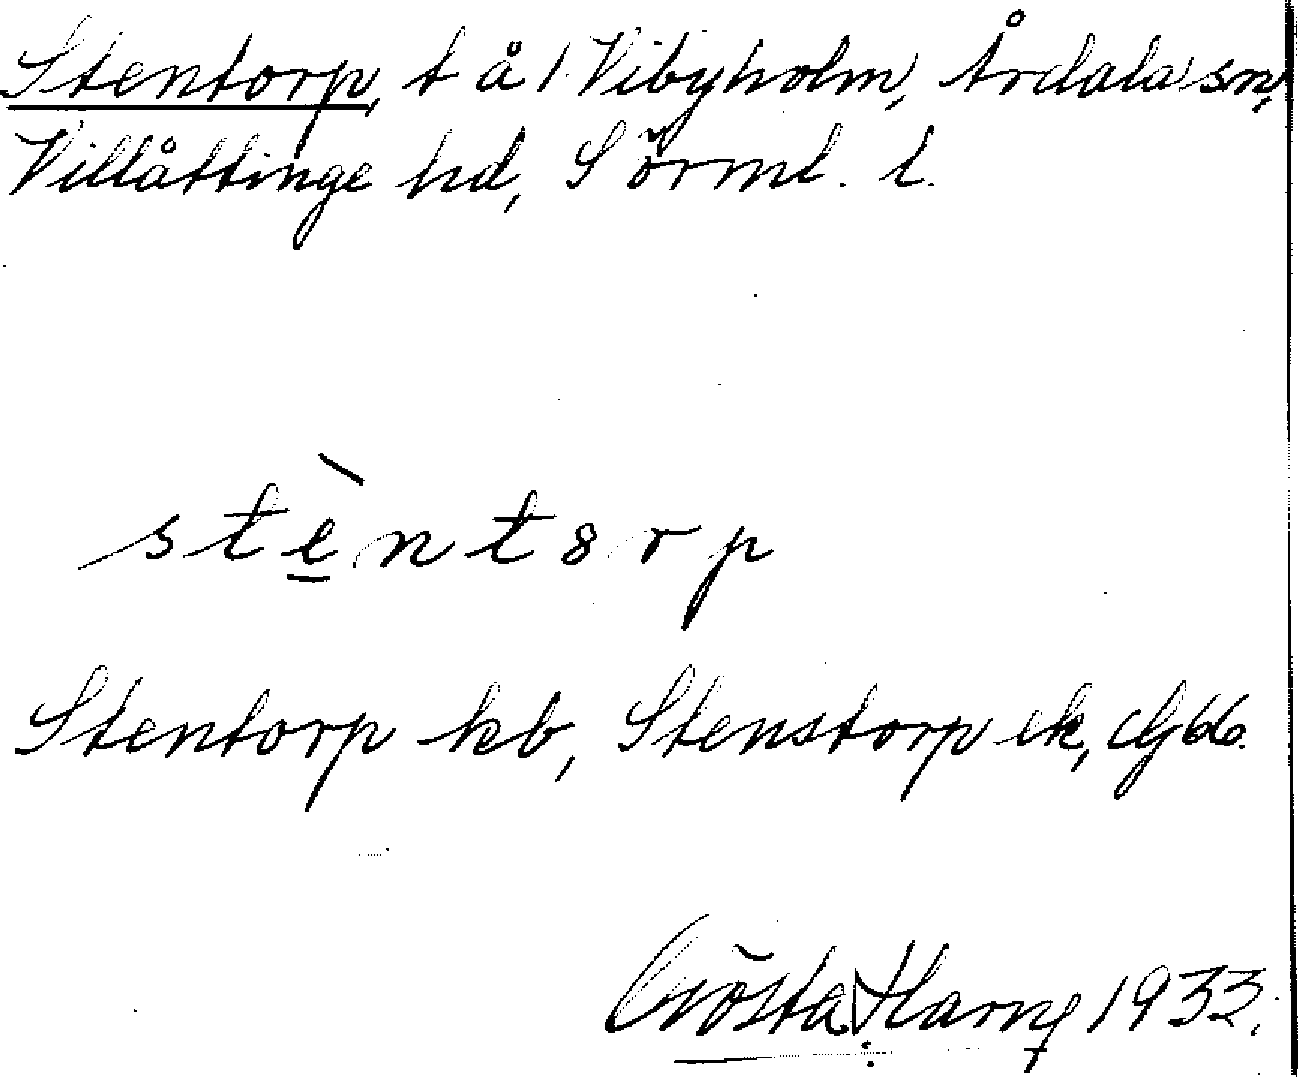 Stentorp, t å 1 Vibyholm, Årdala sn,
Villåttinge hd, Sörml. l.
stèntȣrp
Stentorp kb, Stenstorp ek, Gj 66.
Gösta Harng 1933.